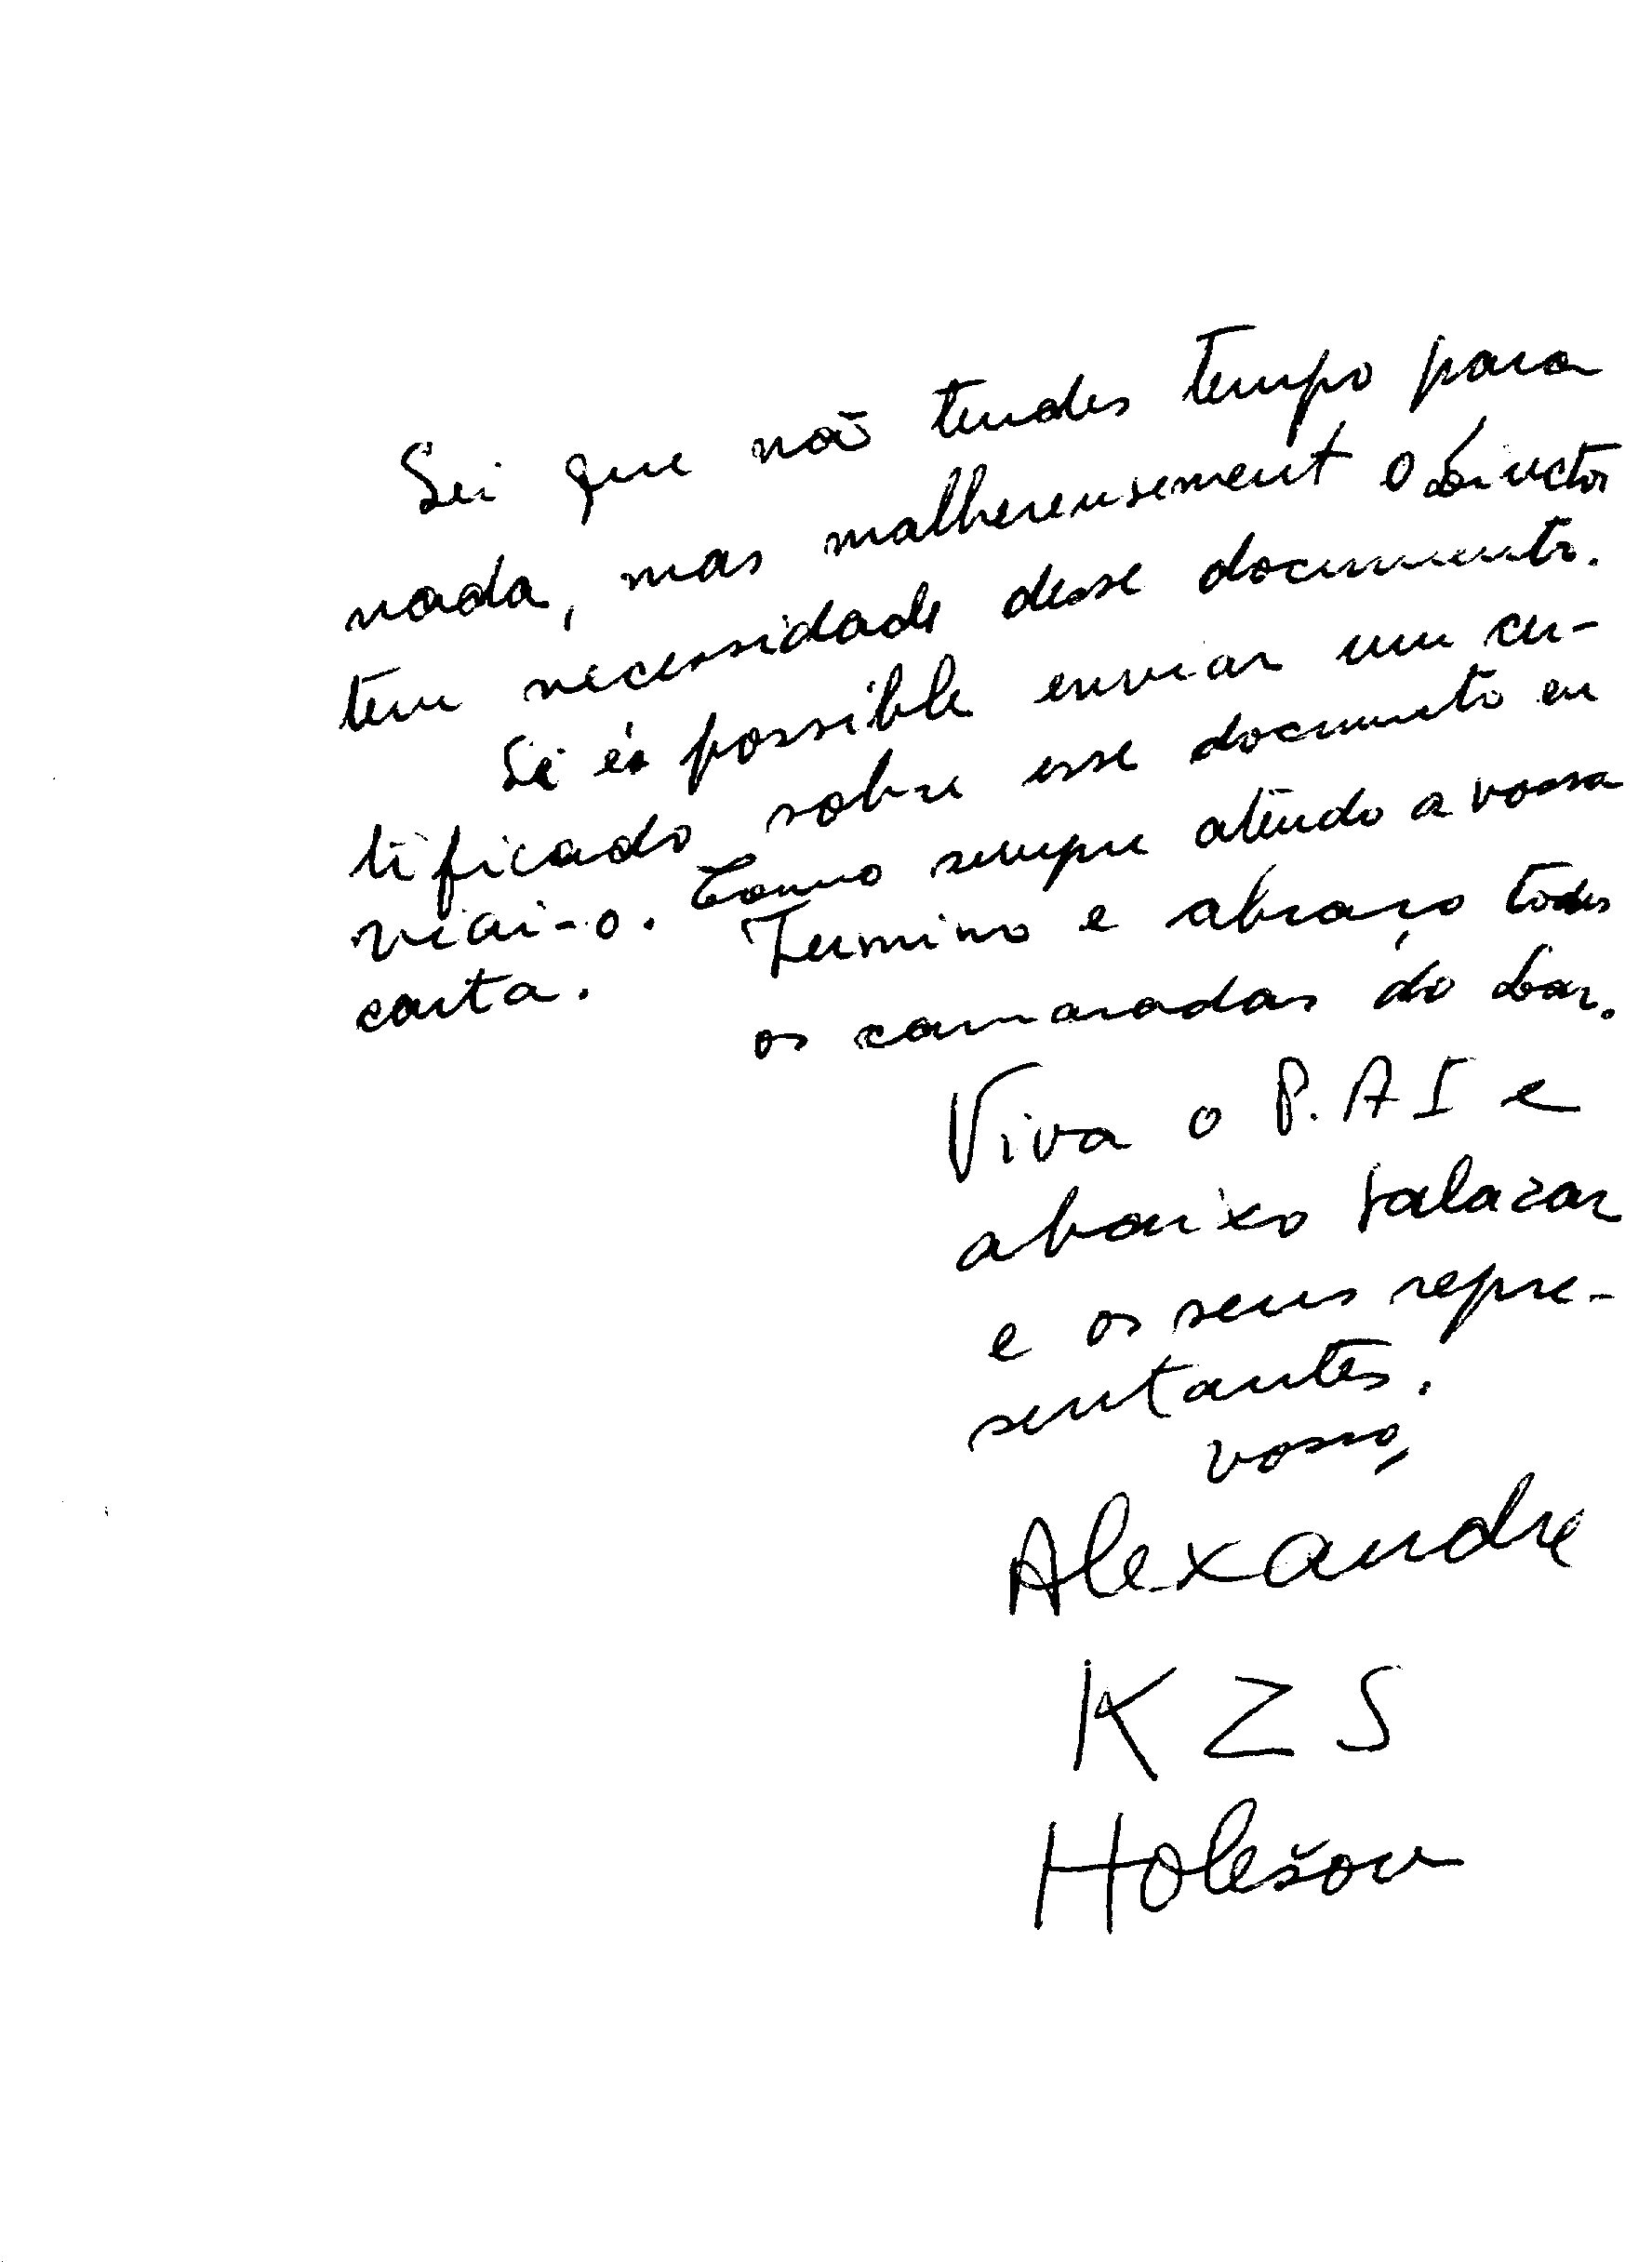 Sei que não tendes tempo para
nada, mas malhereusement o Director
tem necessidade desse documento.
Si és possible enviar um cer-
tificado sobre esse documento en
viai-o. Como sempre atendo a vossa
carta. Termino e abraço todos
os camaradas do Lar.
Viva o P.A I e
abaixo Salazar
e os seus repre-
sentantes.
vosso,
Alexandre
K Z S
Holešov